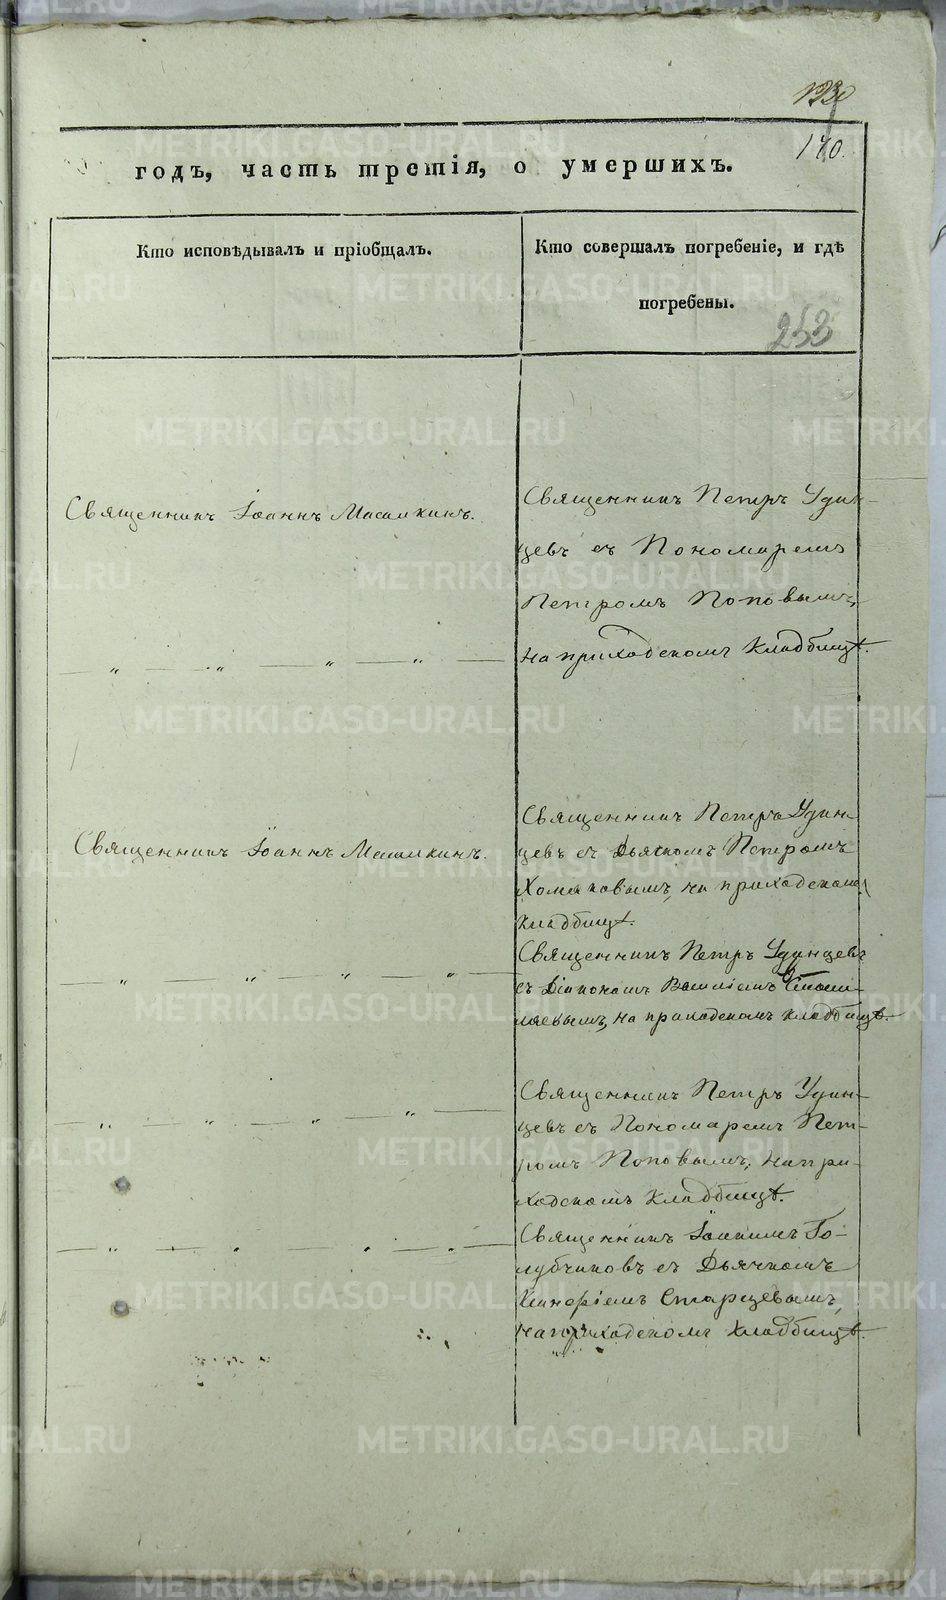 140.
годъ, часть третія, о умершихъ.
Кто исповѣдывалъ и пріобщалъ.
Кто совершалъ погребеніе, и гдѣ
погребены.
253
Священникъ Іоаннъ
Священникъ Петръ Удин-
цевъ съ Пономаремъ
Петромъ Поповымъ,
на приходскомъ кладбищѣ.
Священникъ Іоаннъ
Священникъ Петръ Удин-
цевъ съ Дьячкомъ Петромъ
Хомяковымъ, на приходскомъ
кладбищѣ.
Священникъ Петръ Удинцевъ
съ Діакономъ Василіемъ
на приходскомъ кладбищѣ.
Священникъ Петръ Удин-
цевъ съ Пономаремъ Пет-
ромъ Поповымъ, на при-
ходскомъ кладбищѣ.
Священникъ Іоакимъ Го-
лубчиковъ съ Дьячкомъ
Старцевымъ,
на приходскомъ кладбищѣ.
METRIKI.GASO-URAL.RU